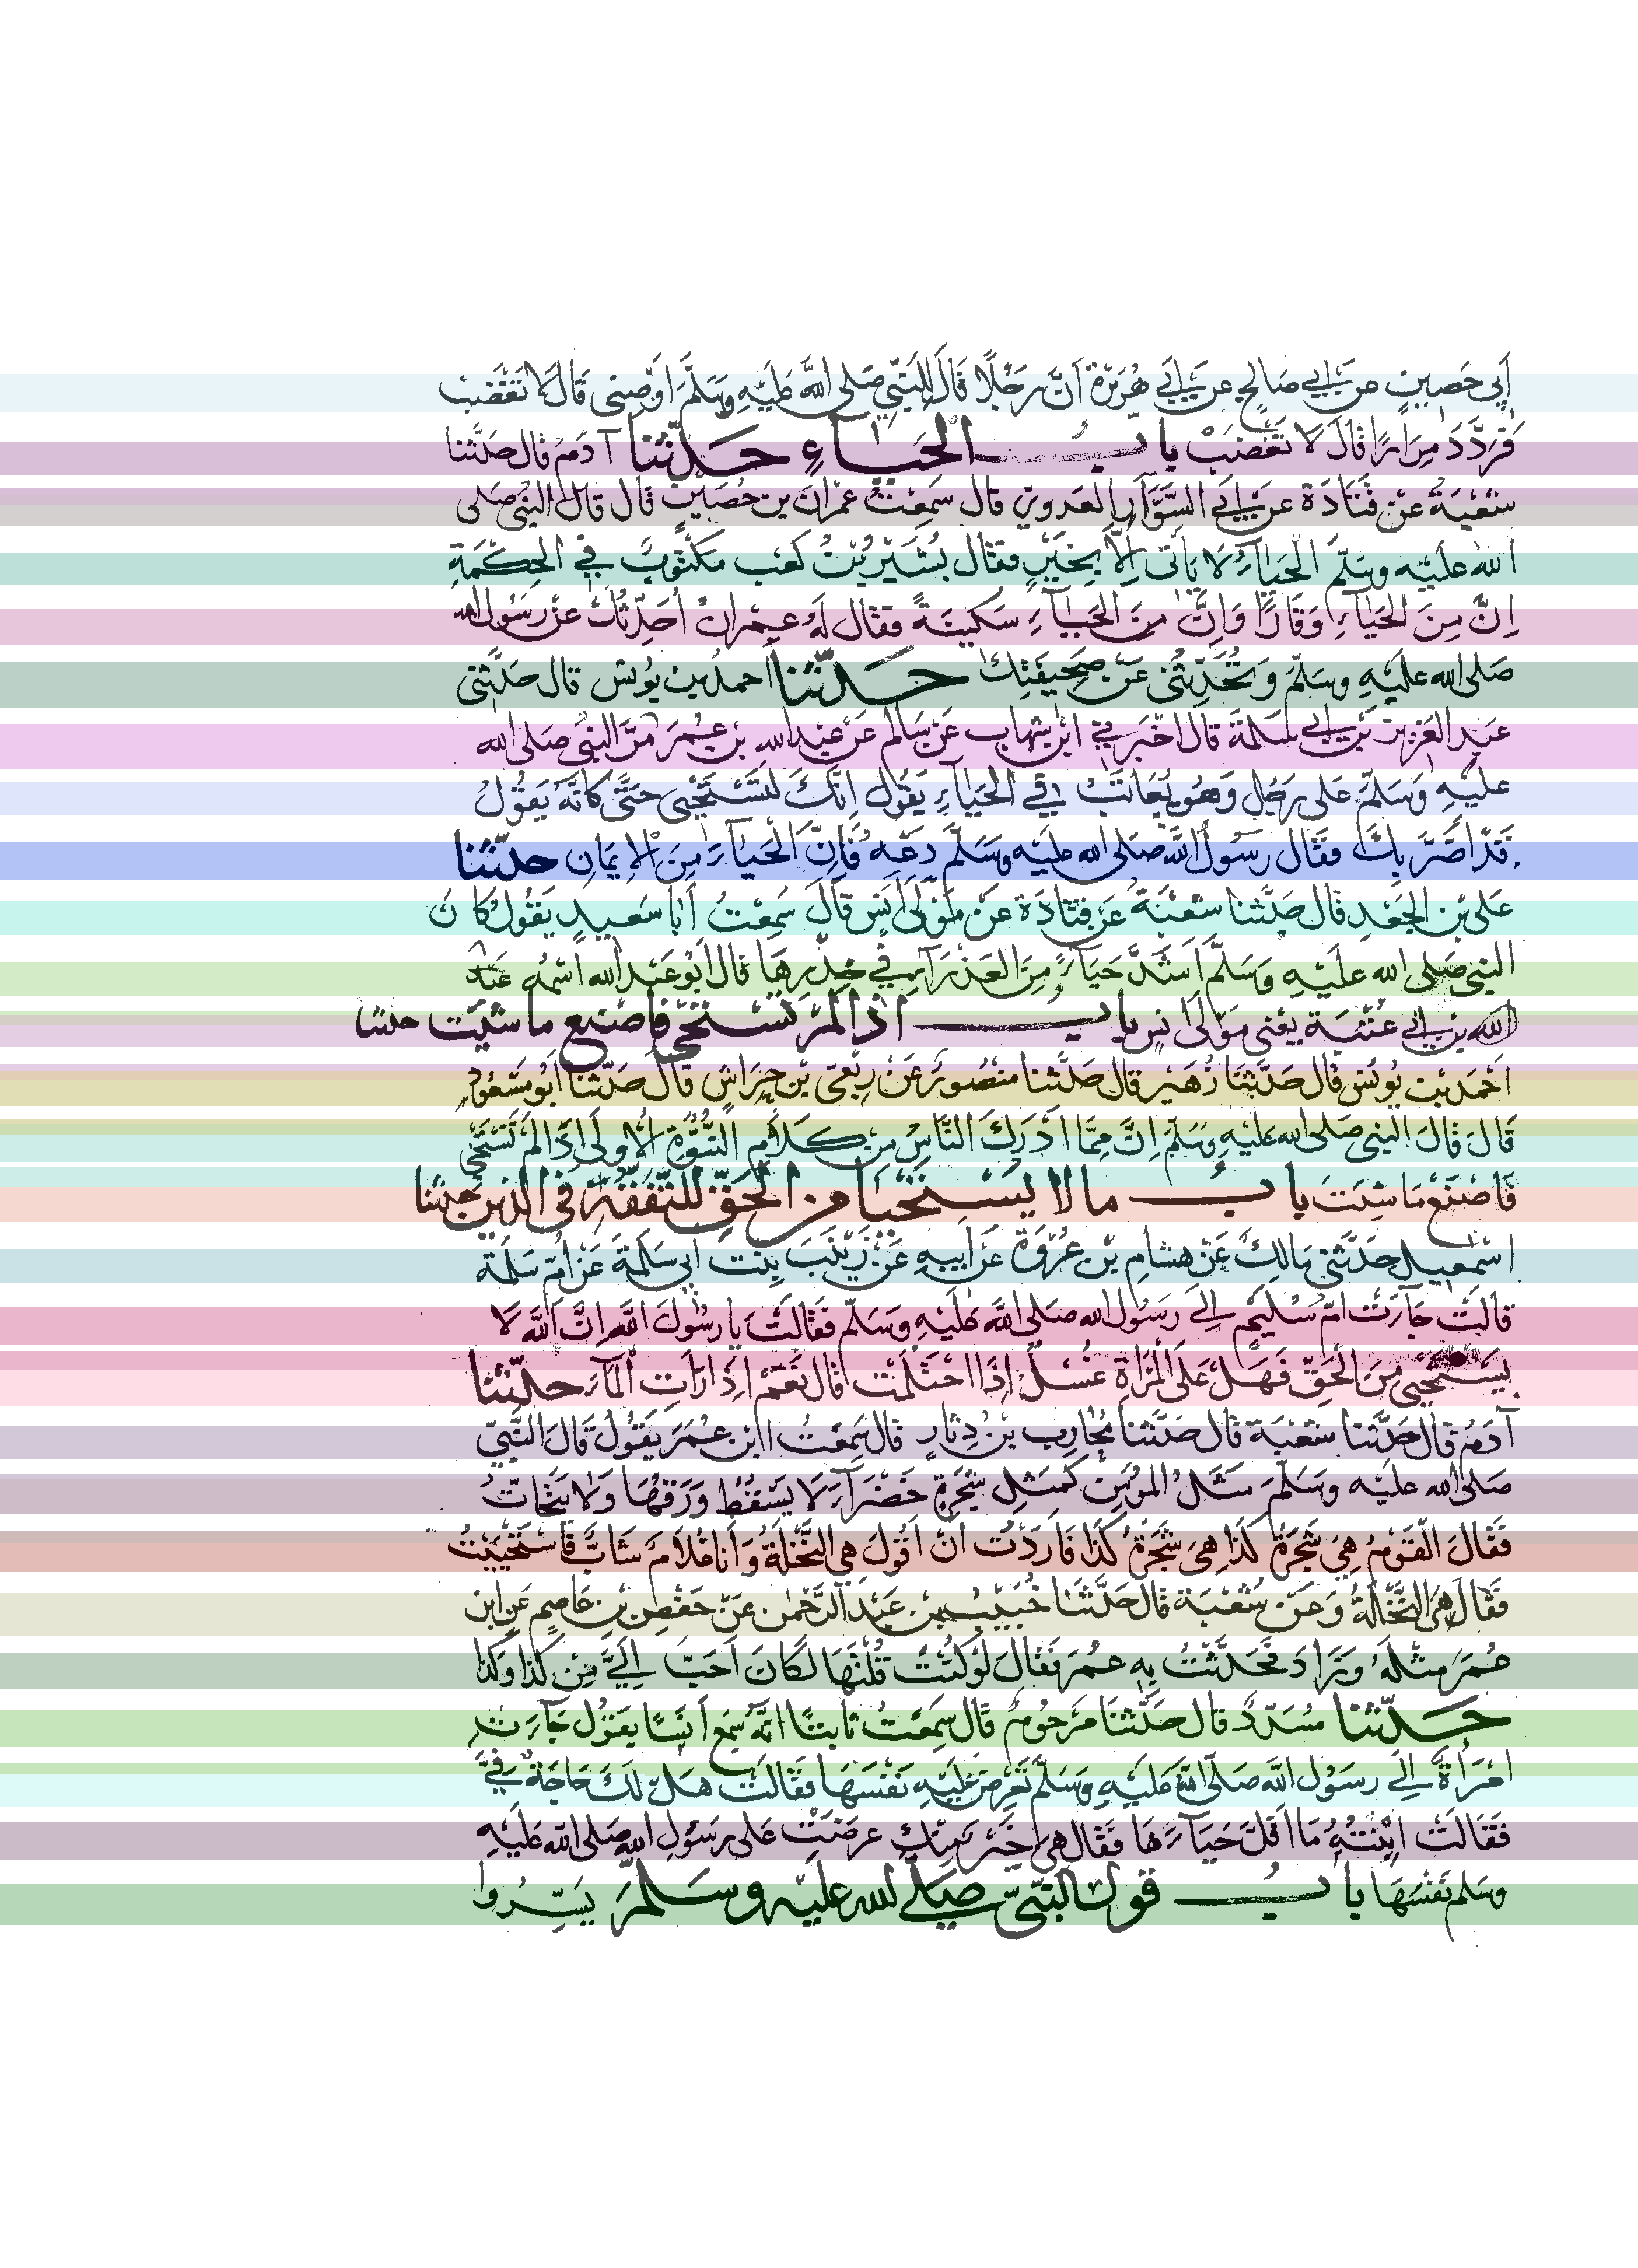 أَبِي حَصِينٍ عن أبي صَالِحٍ عن أبي هُرَيْرَةَ أنَّ رَجُلًا قَالَ لِلنَّبِيِّ صَلى اللَّه عَلَيْهِ وَسَلَّمَ اَوْصِنِى قَالَ لَا تَغْضَبْ
فَرَدَّدَ مِرَارًا قَالَ لَا تَغْضَبْ بابُ الحَيَاءِ حَدَّثنا آدَمُ قال حَدَّثنا
شعْبَةُ عَنْ قَتَادَةَ عن أبي السَّوَّارِ العَدَوِيّ قال سَمِعْتُ عِمْرَانَ بن حُصَيْنٍ قَال قال النبي صَلى
الله عَلَيْه وسَلَّمَ الحَيَاءُ لَا يَأتى إِلّا بِخَيْرٍ فقال بُشَيْرُ بْنُ كَعْب مَكْتُوبٌ في الحِكْمَةِ
اِنَّ مِنَ الحَيَاءِ وَقَارًا وَاِنَّ مِنَ الحَيَاءِ سَكِينَةً فقال لَهُ عِمْرانُ أُحَدِّثُكَ عَنْ رَسُول الله
صَلى الله عَلَيْهِ وسَلّمَ وَتُحَدِّثُنى عَنْ صَحِيفَتِكَ حَدَّثنا احمدُ بن يُونس قال حَدَّثنى
عَبْد العَزِيز بن أبي سَلَمَةَ قال اَخْبَرَنِي ابْن شهاب عَنْ سَالم عَن عَبْد اللهِ بْن عُمَرَ مَرَّ النبي صَلى الله
عليْهِ وَسَلّمَ على رَجُلٍ وَهُو يُعَاتَبُ في الحَيَاءِ يَقُول اِنَّكَ لَتَسْتَحْيى حتَّى كَانَّهُ يَقُولُ
قَدْ اَضَرَّ بِكَ فقَال رَسُولُ اللَّه صَلى الله عليْه وَسَلَّمَ دَعْهُ فَاِنَّ الحَيَاءَ مِنَ الإِيمَانِ حدثنا
عَلى بْن الجَعْدِ قَال حَدَّثنا شعْبَةُ عَن قتَادَةَ عَنْ مَوْلَى اَنَس قالَ سَمِعْتُ أبَا سَعِيدٍ يَقُولُ كانَ
النبي صَلى الله عليْهِ وَسَلَّمَ اَشَدَّ حَيَاءً مِنَ العَذْرَاءِ في خِدْرِهَا قال اَبُو عَبْد الله اسْمُه عَبْدُ
الله بن أبي عُتْبَة يعْنى مَوْلَى انسٍ بابُ اذَا لَمْ تَسْتَحْيِ فاصْنع ما شئت حدثنا
اَحْمَد بن يُونُس قال حَدَّثَنَا زُهَير قال حَدَّثنا منصُور عَن رِبْعِيّ بْن حِرَاشٍ قَال حَدَّثنا اَبُو مَسْعُودٍ
قَالَ قَالَ النبي صَلى الله عليه وسَلَّمَ اِنَّ مِمَّا اَدْرَكَ النَّاسُ مِنْ كَلَامِ النُّبُوَّةِ الاُولَى اِذَا لَمْ تَسْتَحْيِ
فَاصْنَعْ مَا شِئتَ بابُ مالا يُسْتَحْيَا من الحَقِّ للتَّفَقُّهِ فى الدِّين حَدثنا
اسْمٰعِيل حَدَّثَنى مَالِكٌ عَنْ هشَامِ بْن عُرْوَةَ عَنْ اَبِيهِ عَنْ زَيْنَبَ بِنْت ابى سَلَمَةَ عَنْ اُمّ سَلَمَة
قالَتْ جَاءَتْ اُمّ سُلَيْمٍ اِلَى رَسُول الله صَلى اللَّه عَلَيْهِ وَسَلّم فقَالَت يا رَسُولَ اللَّه اِنَّ اللَّهَ لَا
يَسْتَحْيى مِنَ الحَقِّ فَهَلْ عَلَى المَرْاةِ غُسْلٌ اِذَا احْتَلَمت قال نَعَمْ اِذَا رَاَتِ المَاءَ حدّثنا
آدَمُ قال حَدَّثنا شعْبَة قال حَدَّثَنا مُحَارِب بْن دِثَارٍ قال سَمِعْتُ ابن عُمَرَ يَقُولُ قَالَ النَّبِيّ
صَلى الله عليْه وَسَلمَ مَثَلُ المؤمِن كَمَثَلِ شَجَرَةٍ خَضْرَاءَ لَا يَسْقُطُ وَرَقُهَا وَلَا يَتَحَاتُّ
فَقَالَ الْقَوْمُ هِيَ شَجَرَةُ كَذَا هِيَ شَجَرَةُ كَذَا فَارَدْت اَنْ اَقُولَ هِيَ النَّخْلَةُ وَاَنا غُلَامٌ شَابٌّ فَاسْتَحْيَيْتُ
فَقَال هِيَ النَّخْلَةُ وَعَنْ شُعْبَة قال حَدَّثَنَا خُبَيْب بن عَبْد الرَّحْمٰن عَنْ حَفْص بْن عَاصِمٍ عَنِ ابن
عُمَرَ مِثْلَهُ وَزَادَ فَحَدَّثْتُ بِهِ عمَرَ فَقَالَ لَوْ كُنْتَ قُلْتَهَا لَكَانَ اَحَبَّ اِلَيَّ مِن كَذَا وَكَذَا
حَدّثنا مُسَدَّدٌ قال حَدَّثَنَا مَرْحُومٌ قَال سَمِعْتُ ثَابتًا اَنَّهُ سَمِعَ اَنَسًا يَقُولُ جَاءَت
امْرَاَةٌ اِلَى رَسُول اللَّه صَلَّى اللَّه عَلَيْهِ وَسَلّم تَعْرِضُ عَلَيْهِ نَفْسَهَا فقَالَتْ هَلْ لَكَ حَاجَةٌ فِيَّ
فَقَالَت ابْنَتُهُ مَا اَقَلَّ حَيَاءَهَا فَقَال هِيَ خَيْرٌ مِنْكِ عرضَتْ عَلى رَسُولِ الله صَلى الله عَلَيْهِ
وسَلم نَفْسَهَا بابُ قول النبيّ صَلى الله عليه وسَلمَ يَسِّرُوا